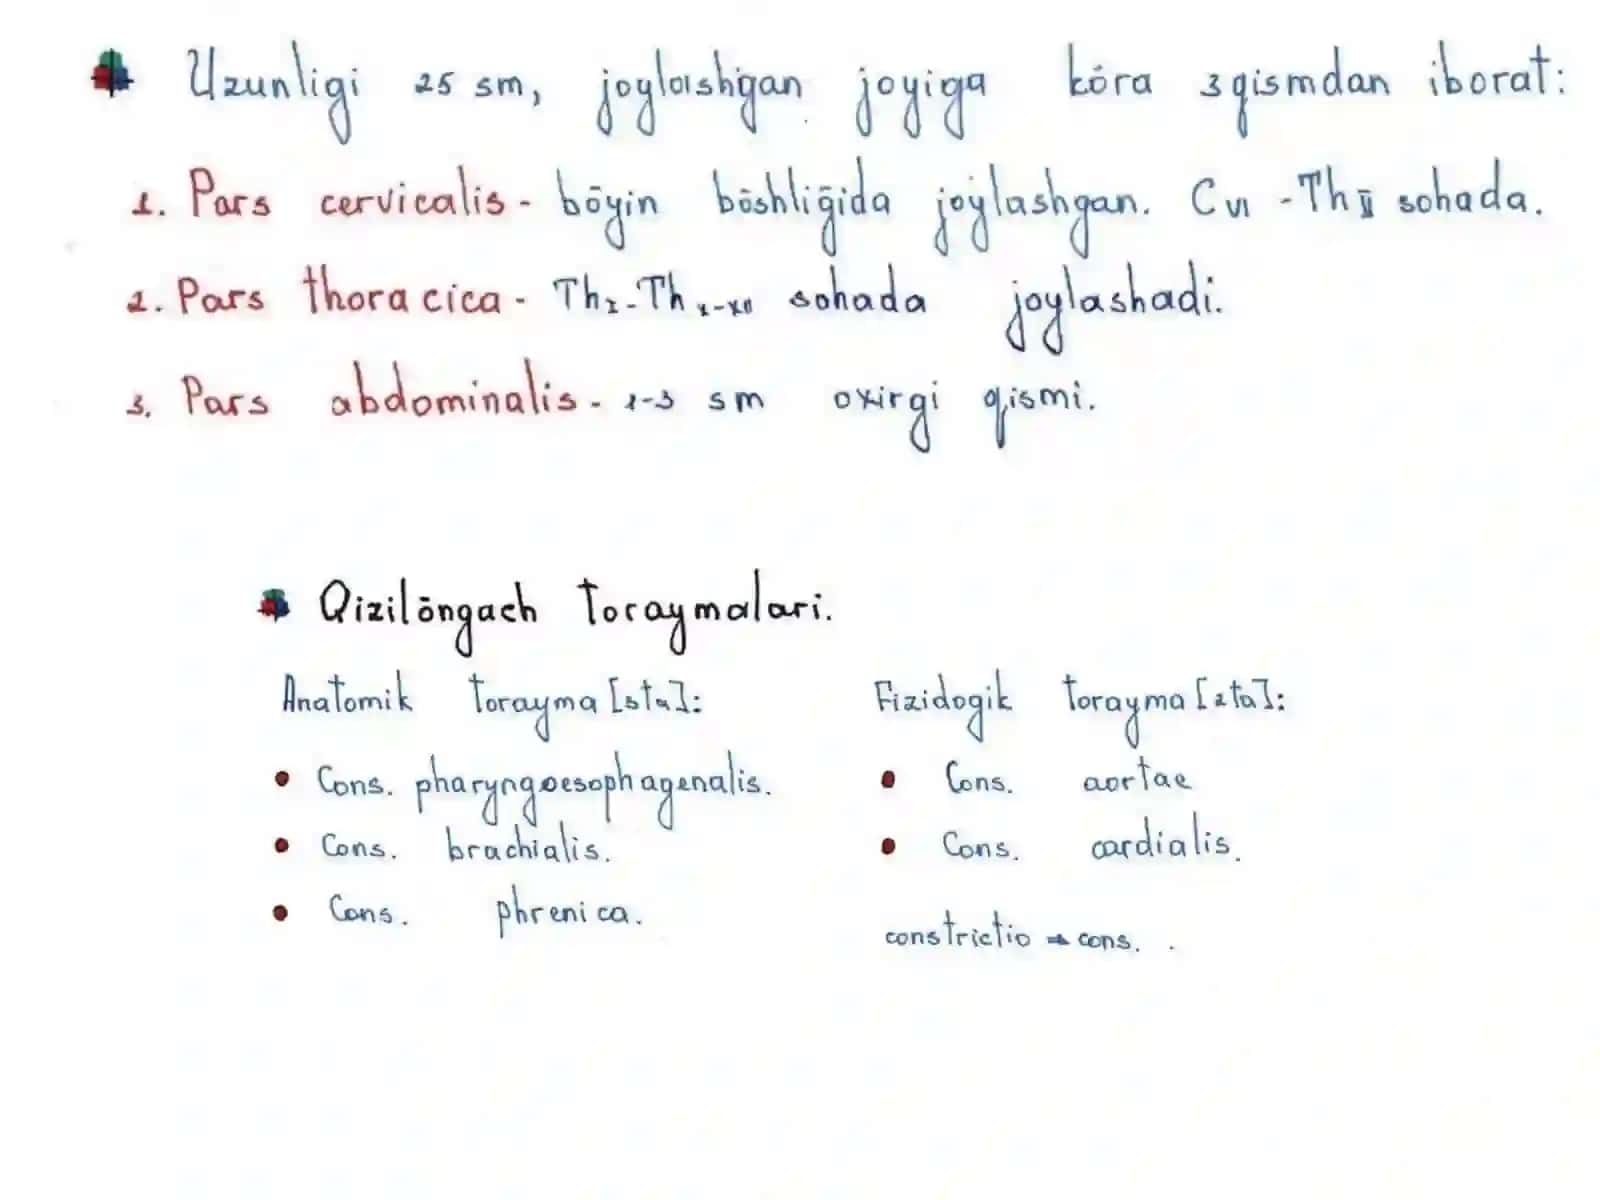 Uzunligi 25 sm, joylashgan joyiga kōra 3 qismdan iborat:
1. Pars cervicalis - bōyin bōshliḡida joylashgan. C VI - Th II sohada.
2. Pars thoracica - Th I - Th X-XII sohada joylashadi.
3. Pars abdominalis - 1-3 sm oxirgi qismi.
Qizilōngach toraymalari.
Anatomik torayma [3ta]:
• Cons. pharyngoesophagenalis.
• Cons. brachialis.
• Cons. phrenica.
Fizidogik torayma [2ta]:
• Cons. aortae
• Cons. cardialis.
constrictio → cons.